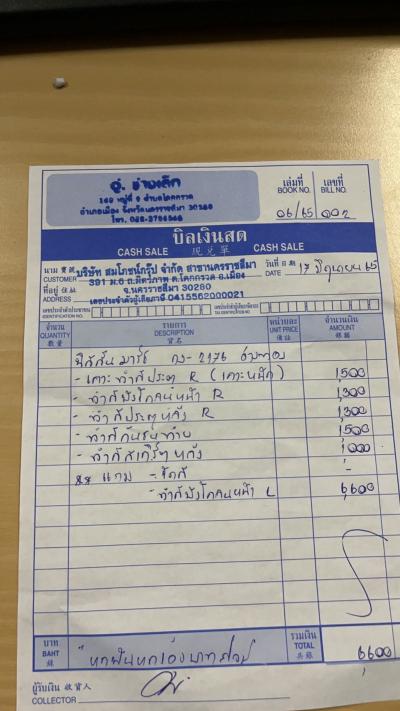 อู่ ช่างเล็ก
169 หมู่ที่ 9 ตำบลโคกกรวด
อำเภอเมือง จังหวัดนครราชสีมา 30280
เล่มที่ BOOK NO. 06/65 เลขที่ BILL NO. 002
บิลเงินสด
CASH SALE 現兌單 CASH SALE
นาม CUSTOMER บริษัท สมโภชน์กรุ๊ป จำกัด สาขานครราชสีมา วันที่ DATE 17 มิถุนายน 65
ที่อยู่ ADDRESS 391 ม.6 ถ.มิตรภาพ ต.โคกกรวด อ.เมือง
จ.นครราชสีมา 30280
เลขประจำตัวผู้เสียภาษี 0415562000021
จำนวน QUANTITY 數量 รายการ DESCRIPTION 貨名 หน่วยละ UNIT PRICE 價註 จำนวนเงิน AMOUNT 銀碼
นิสสัน มาร์ช กง-2176
- เคาะทำสีประตู R (เคาะหนัก) 1,500
- ทำสีบังโคลนหน้า R 1,300
- ทำสีประตูหลัง R 1,300
- ทำสีกันชนท้าย 1,500
- ทำสีสเกิร์ตหลัง 1,000
แถม - ขัดสี -
- ทำสีบังโคลนหน้า L 6,600
บาท BAHT หกพันหกร้อยบาทถ้วน รวมเงิน TOTAL 共銀 6,600
ผู้รับเงิน 收貨人
COLLECTOR